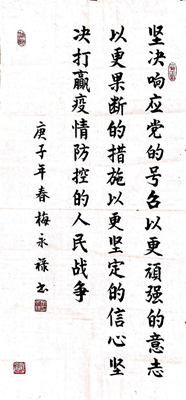 坚决响应党的号召以更頑强的意志
以更果断的措施以更坚定的信心坚
决打赢疫情防控的人民战争
庚子年春梅永禄书